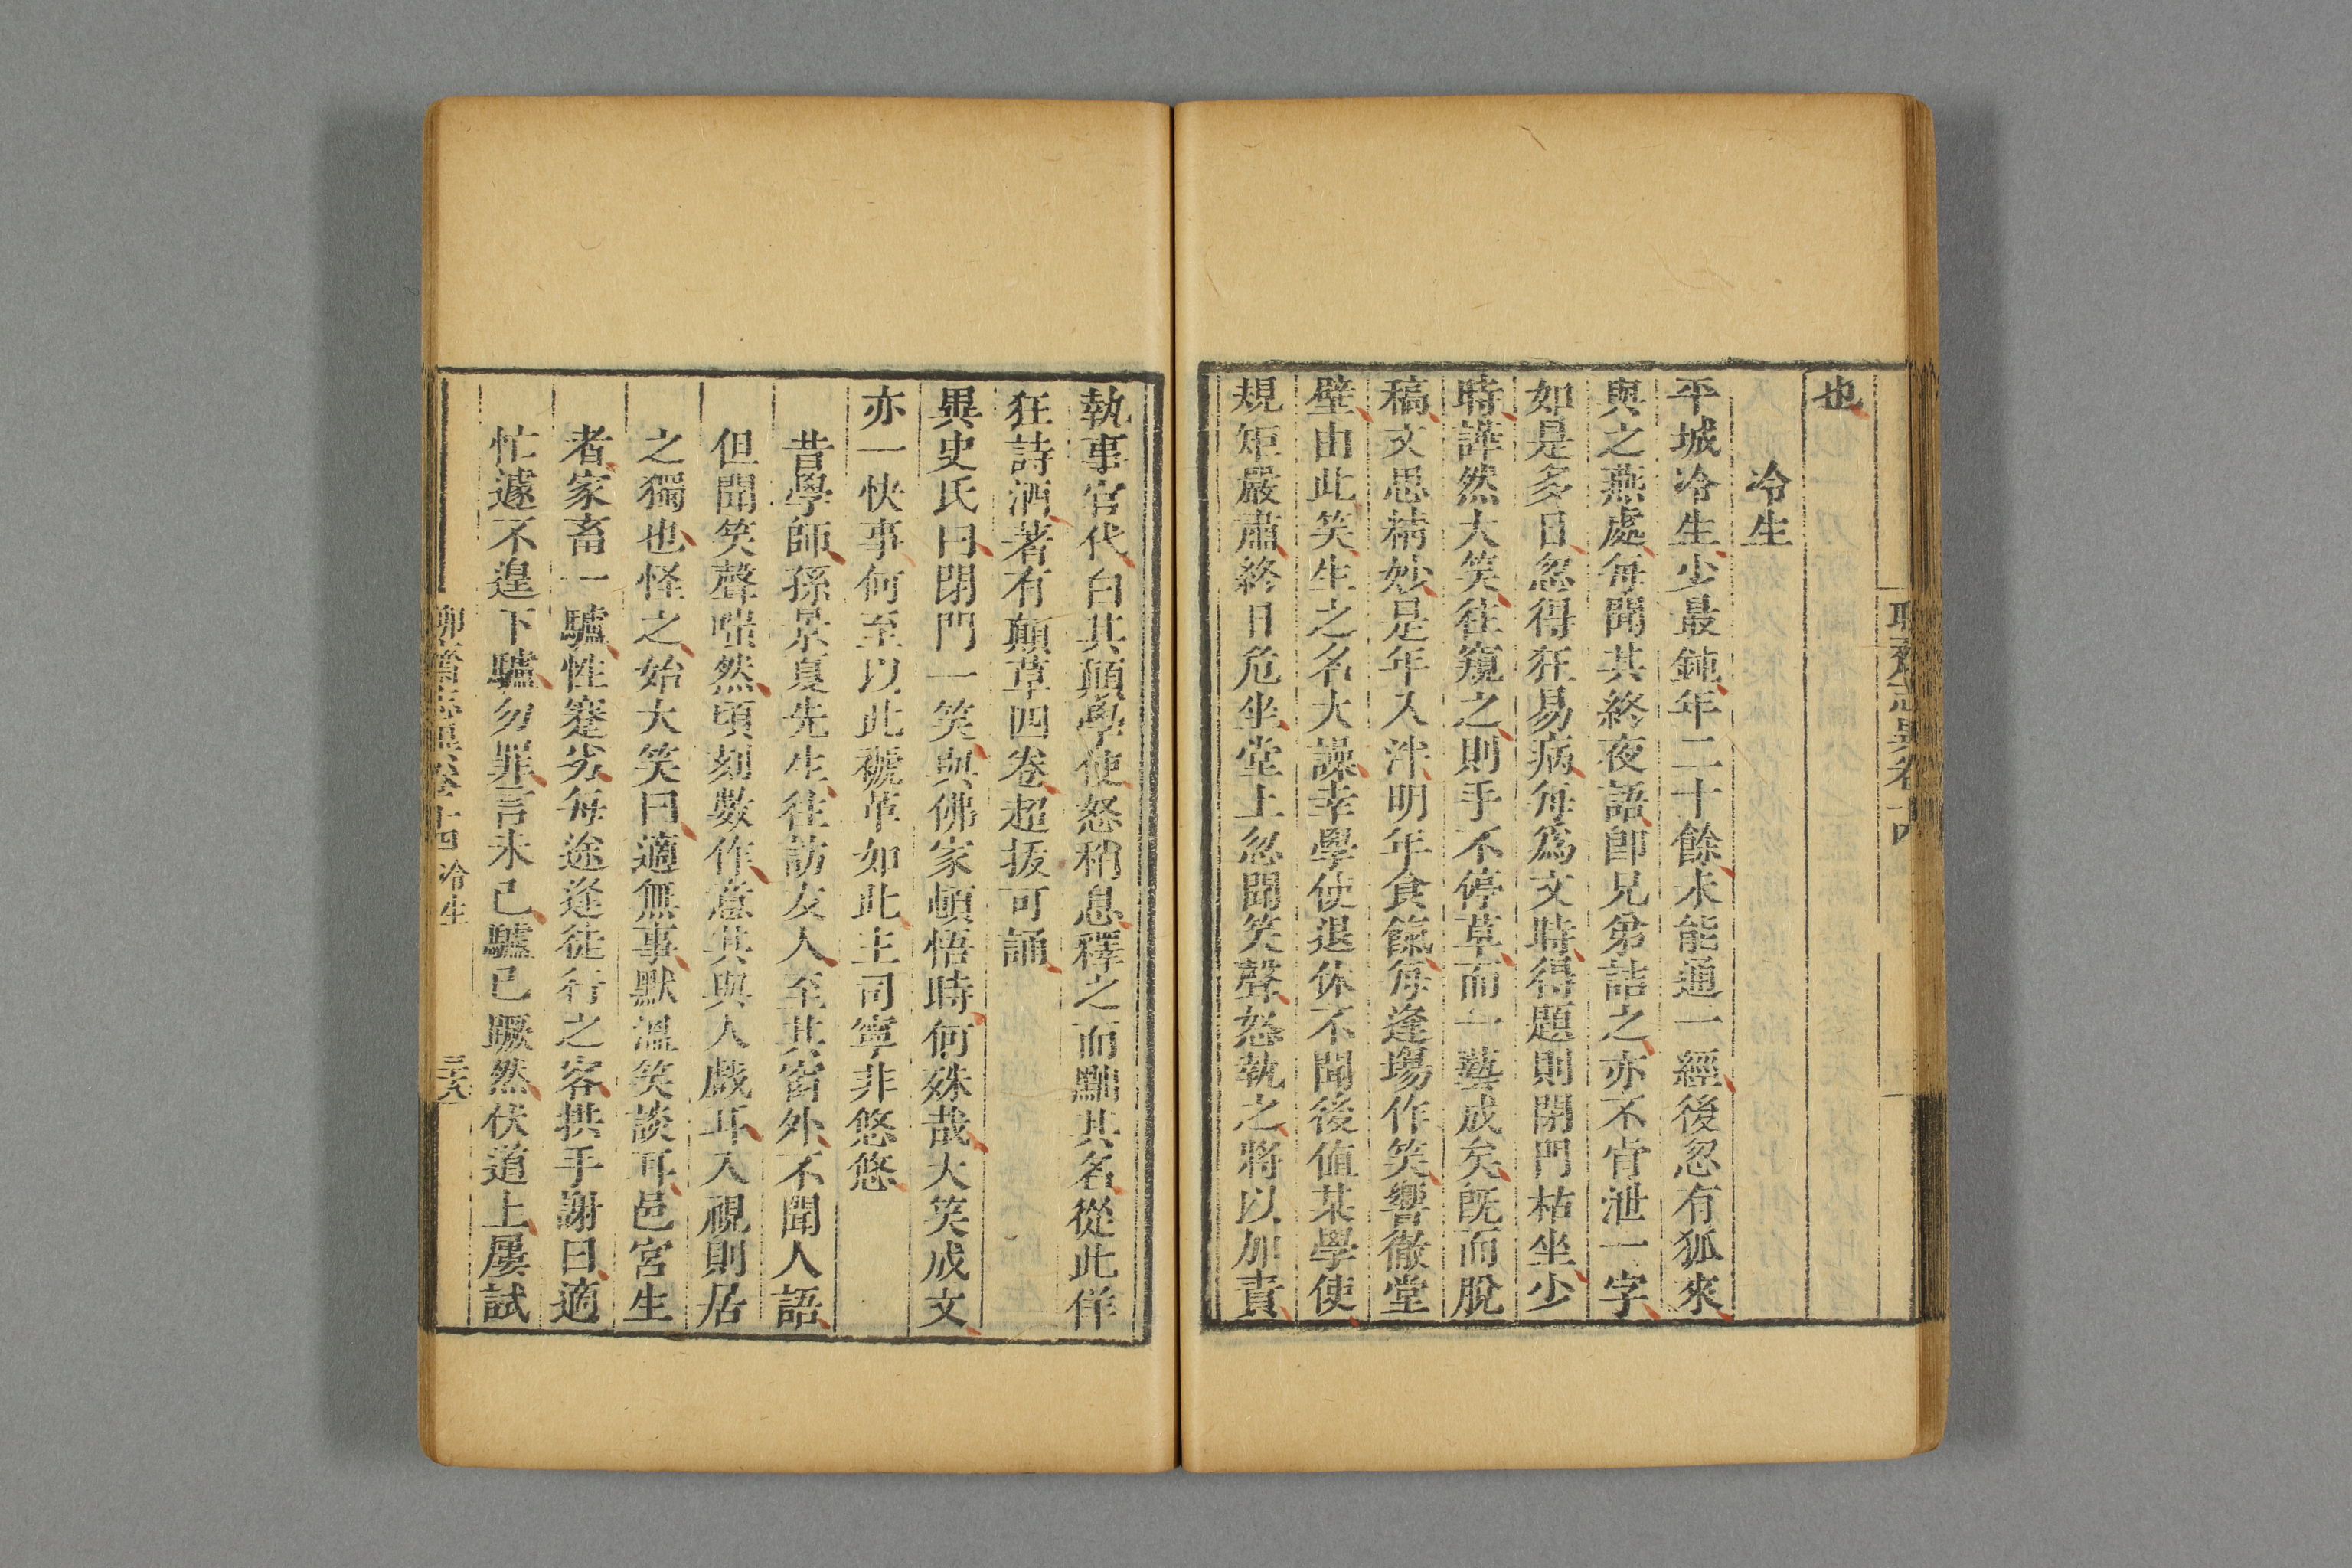 也
冷生
平城冷生少最鈍年二十餘未能通一經後忽有狐來
與之燕處每聞其終夜語卽兄弟詰之亦不肯泄一字
如是多日忽得狂易病每爲文時得題則閉門枯坐少
時譁然大笑往窺之則手不停草而一藝成矣旣而脫
稿文思精妙是年入泮明年食餼每逢場作笑響徹堂
壁由此笑生之名大譟幸學使退休不聞後値某學使
規矩嚴肅終日危坐堂上忽聞笑聲怒執之將以加責
執事官代白其顛學使怒稍息釋之而黜其名從此佯
狂詩酒著有顛草四卷超拔可誦
異史氏曰閉門一笑與佛家頓悟時何殊哉大笑成文
亦一快事何至以此褫革如此主司寧非悠悠
昔學師孫景夏先生往訪友人至其窗外不聞人語
但聞笑聲嗤然頃刻數作意其與人戲耳入視則居
之獨也怪之始大笑曰適無事默溫笑談耳邑宮生
者家畜一驢性蹇劣每途逢徒行之客拱手謝曰適
忙遽不遑下驢勿罪言未已驢已蹶然伏道上屢試
聊齋志異卷十四 冷生 三十八